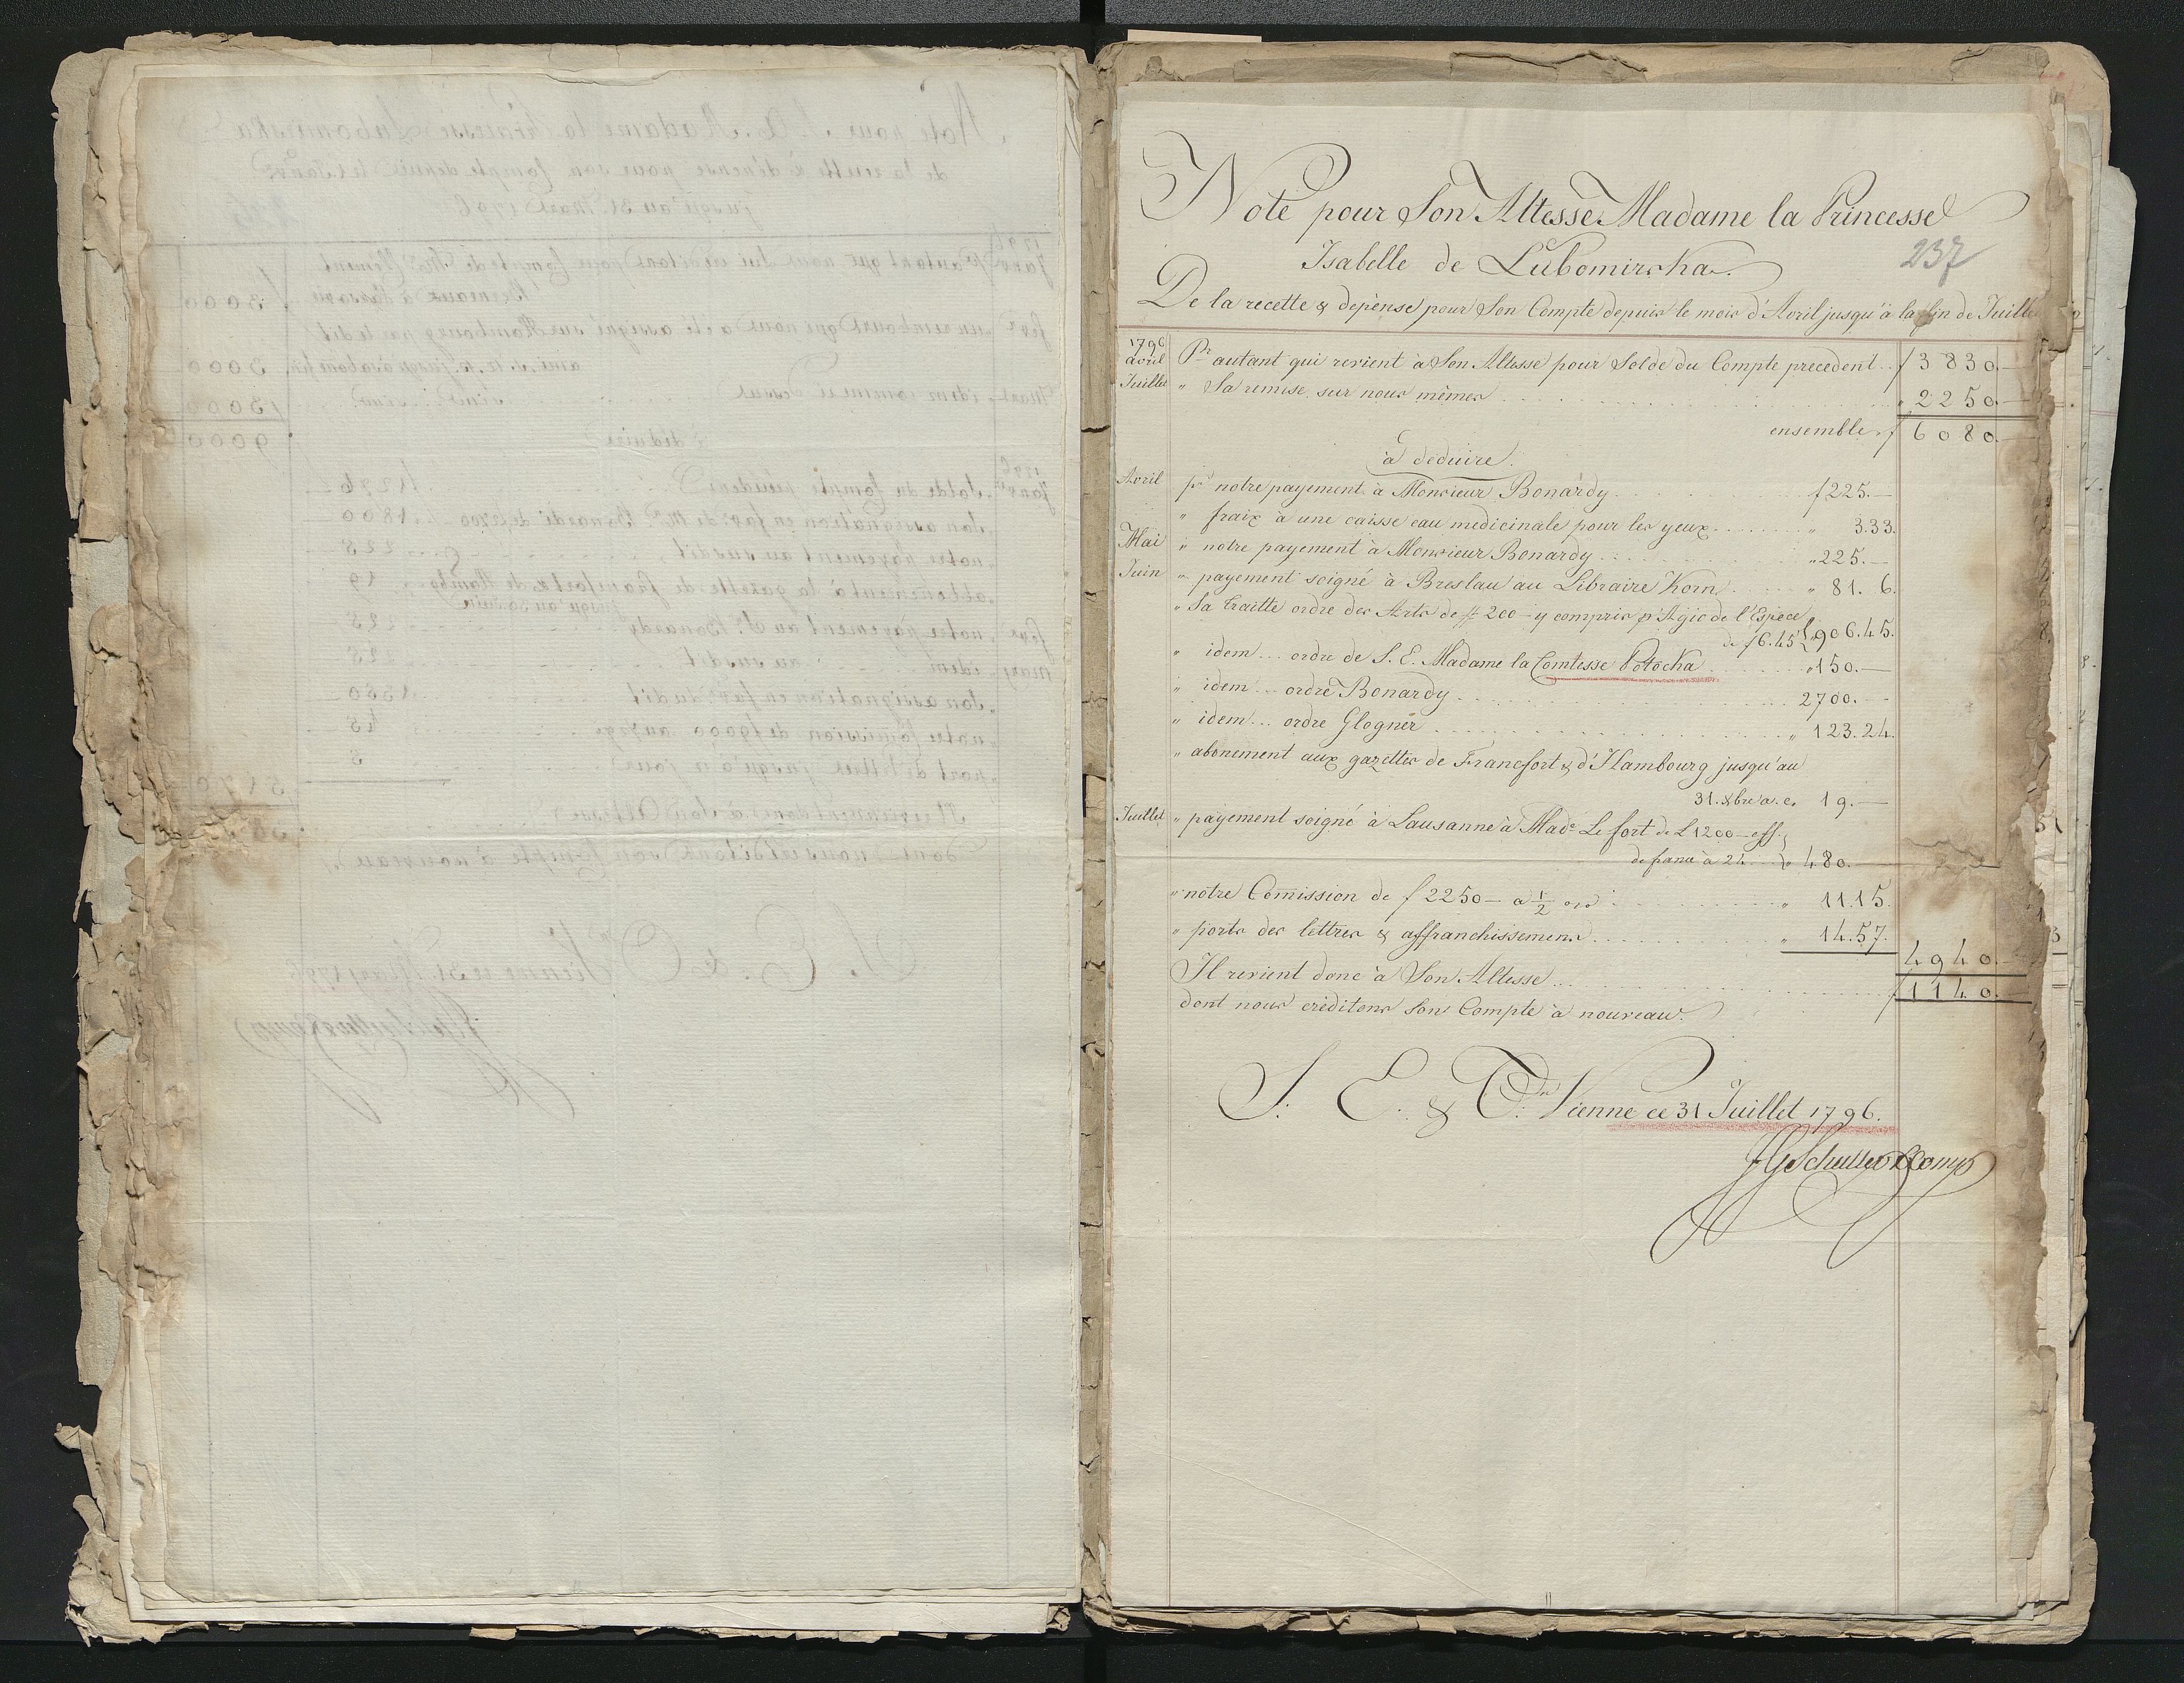 Note pour Son Altesse Madame la Princesse
237
Isabelle de Lubomirska.
De la recette & depènse pour Son Compte depuis le mois d'Avril jusqu'à la fin de Juillet
1796
avril Pr autant qui revient à Son Altesse pour Solde du Compte precedent .. f 3830.—
Juillet " Sa remise sur nous mèmes . . . " 2250.—
ensemble f 6080.
à deduire.
Avril pr notre payement à Monsieur Bonardy . . . f 225.—
" fraix à une caisse eau medicinale pour les yeux . . . " 3.33.
Mai " notre payement à Monsieur Bonardy . . . " 225.—
Juin " payement soigné à Breslau au Libraire Korn . . . " 81. 6.
" Sa traitte ordre des Arts de # 200 — y compris p Agio de l'Espece
de f 6.45 " 906.45.
" idem ... ordre de S. E. Madame la Comtesse Potocka . . . " 150.—
" idem ... ordre Bonardy . . . 2700.—
" idem ... ordre Glogner . . . " 123.24.
" abonement aux gazettes de Francfort & d'Hambourg jusqu'au
31. xbre a. c. 19.—
Juillet " payement soigné à Lausanne à Made Le fort de L 1200 — eff.
de france à 24 " 480.—
" notre Comission de f 2250 — a 1/2 o/o . . . " 11.15.
" ports des lettres & affranchissemens . . . " 14.57.
4940.—
Il revient donc à Son Altesse . . . f 1140.
dont nous créditons Son Compte à nouveau.
S. E. & O. Vienne ce 31 Juillet 1796.
Schuller & Comp